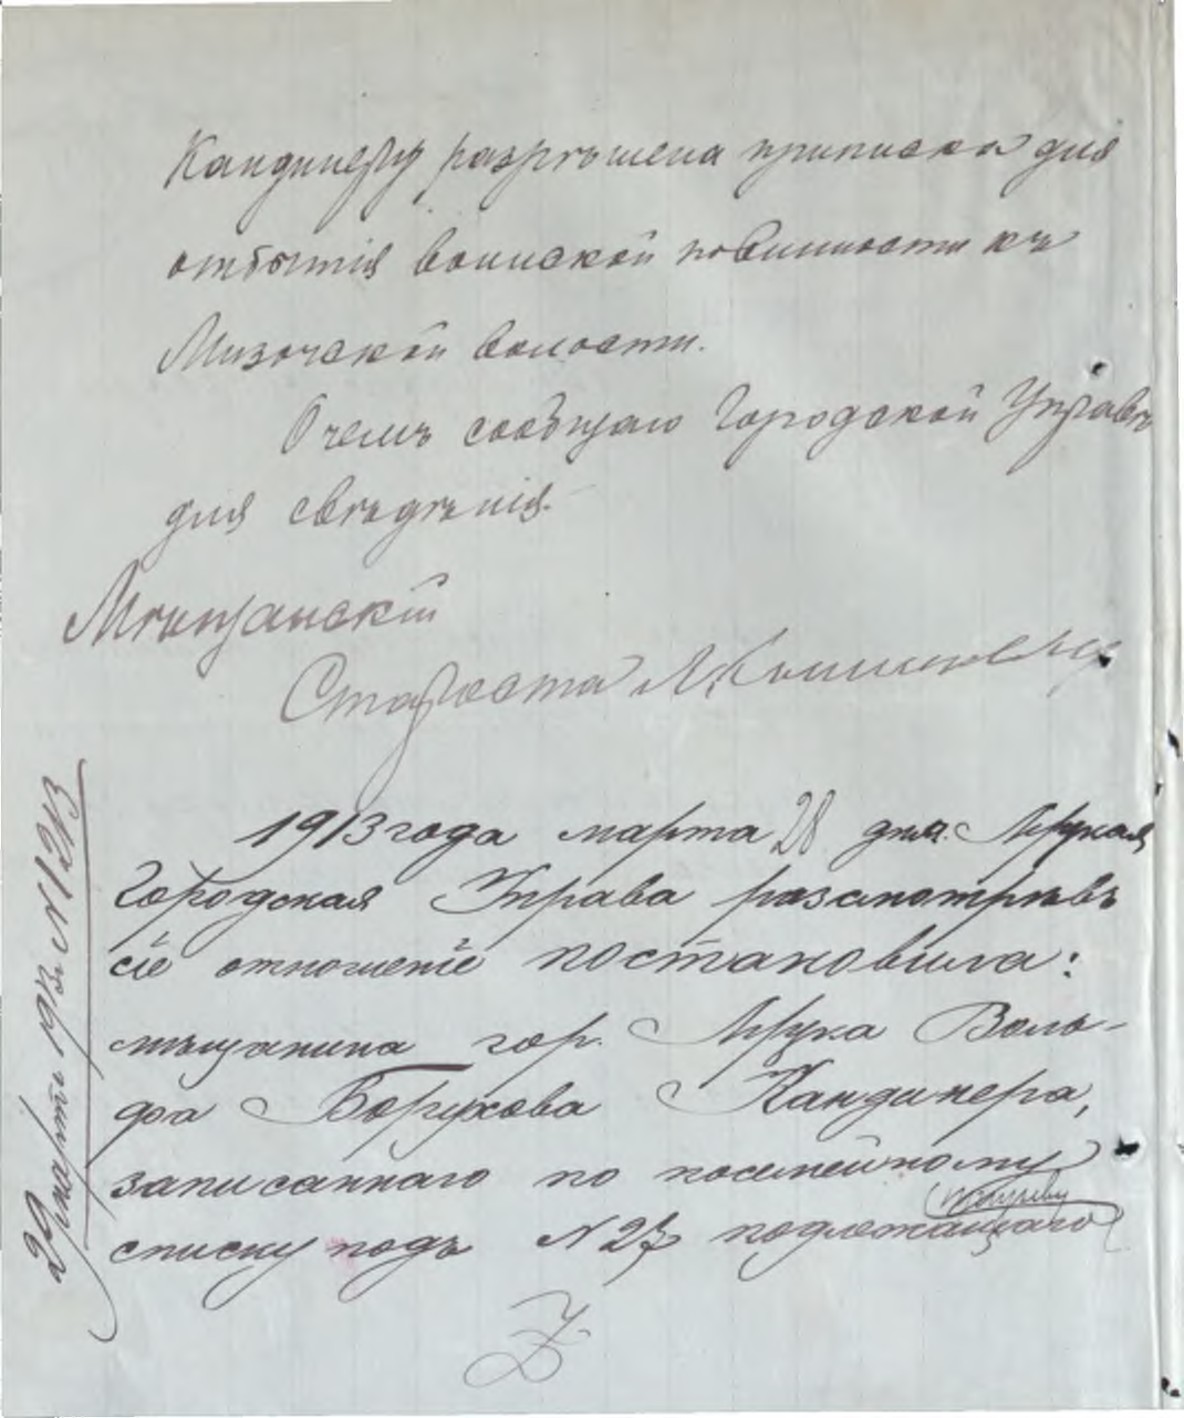 Кандинеру разрѣшена приписка для
отбытія воинской повинности къ
Мизочской волости.
О чемъ сообщаю Городской Управѣ
для свѣдѣнія.
Мѣщанскій
Староста
1913 года марта 28 дня.
Городская Управа разсмотрѣвъ
сіе отношеніе постановила:
мѣщанина гор. Воль-
фа Борухова Кандинера,
записаннаго по посемейному
списку подъ N 27 подлежащаго
29 марта 1913 г. N 1213